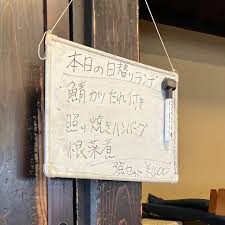 本日の日替りランチ
鯖カツたれ付き
照り焼きハンバーグ
根菜煮
3点セット ¥1,000